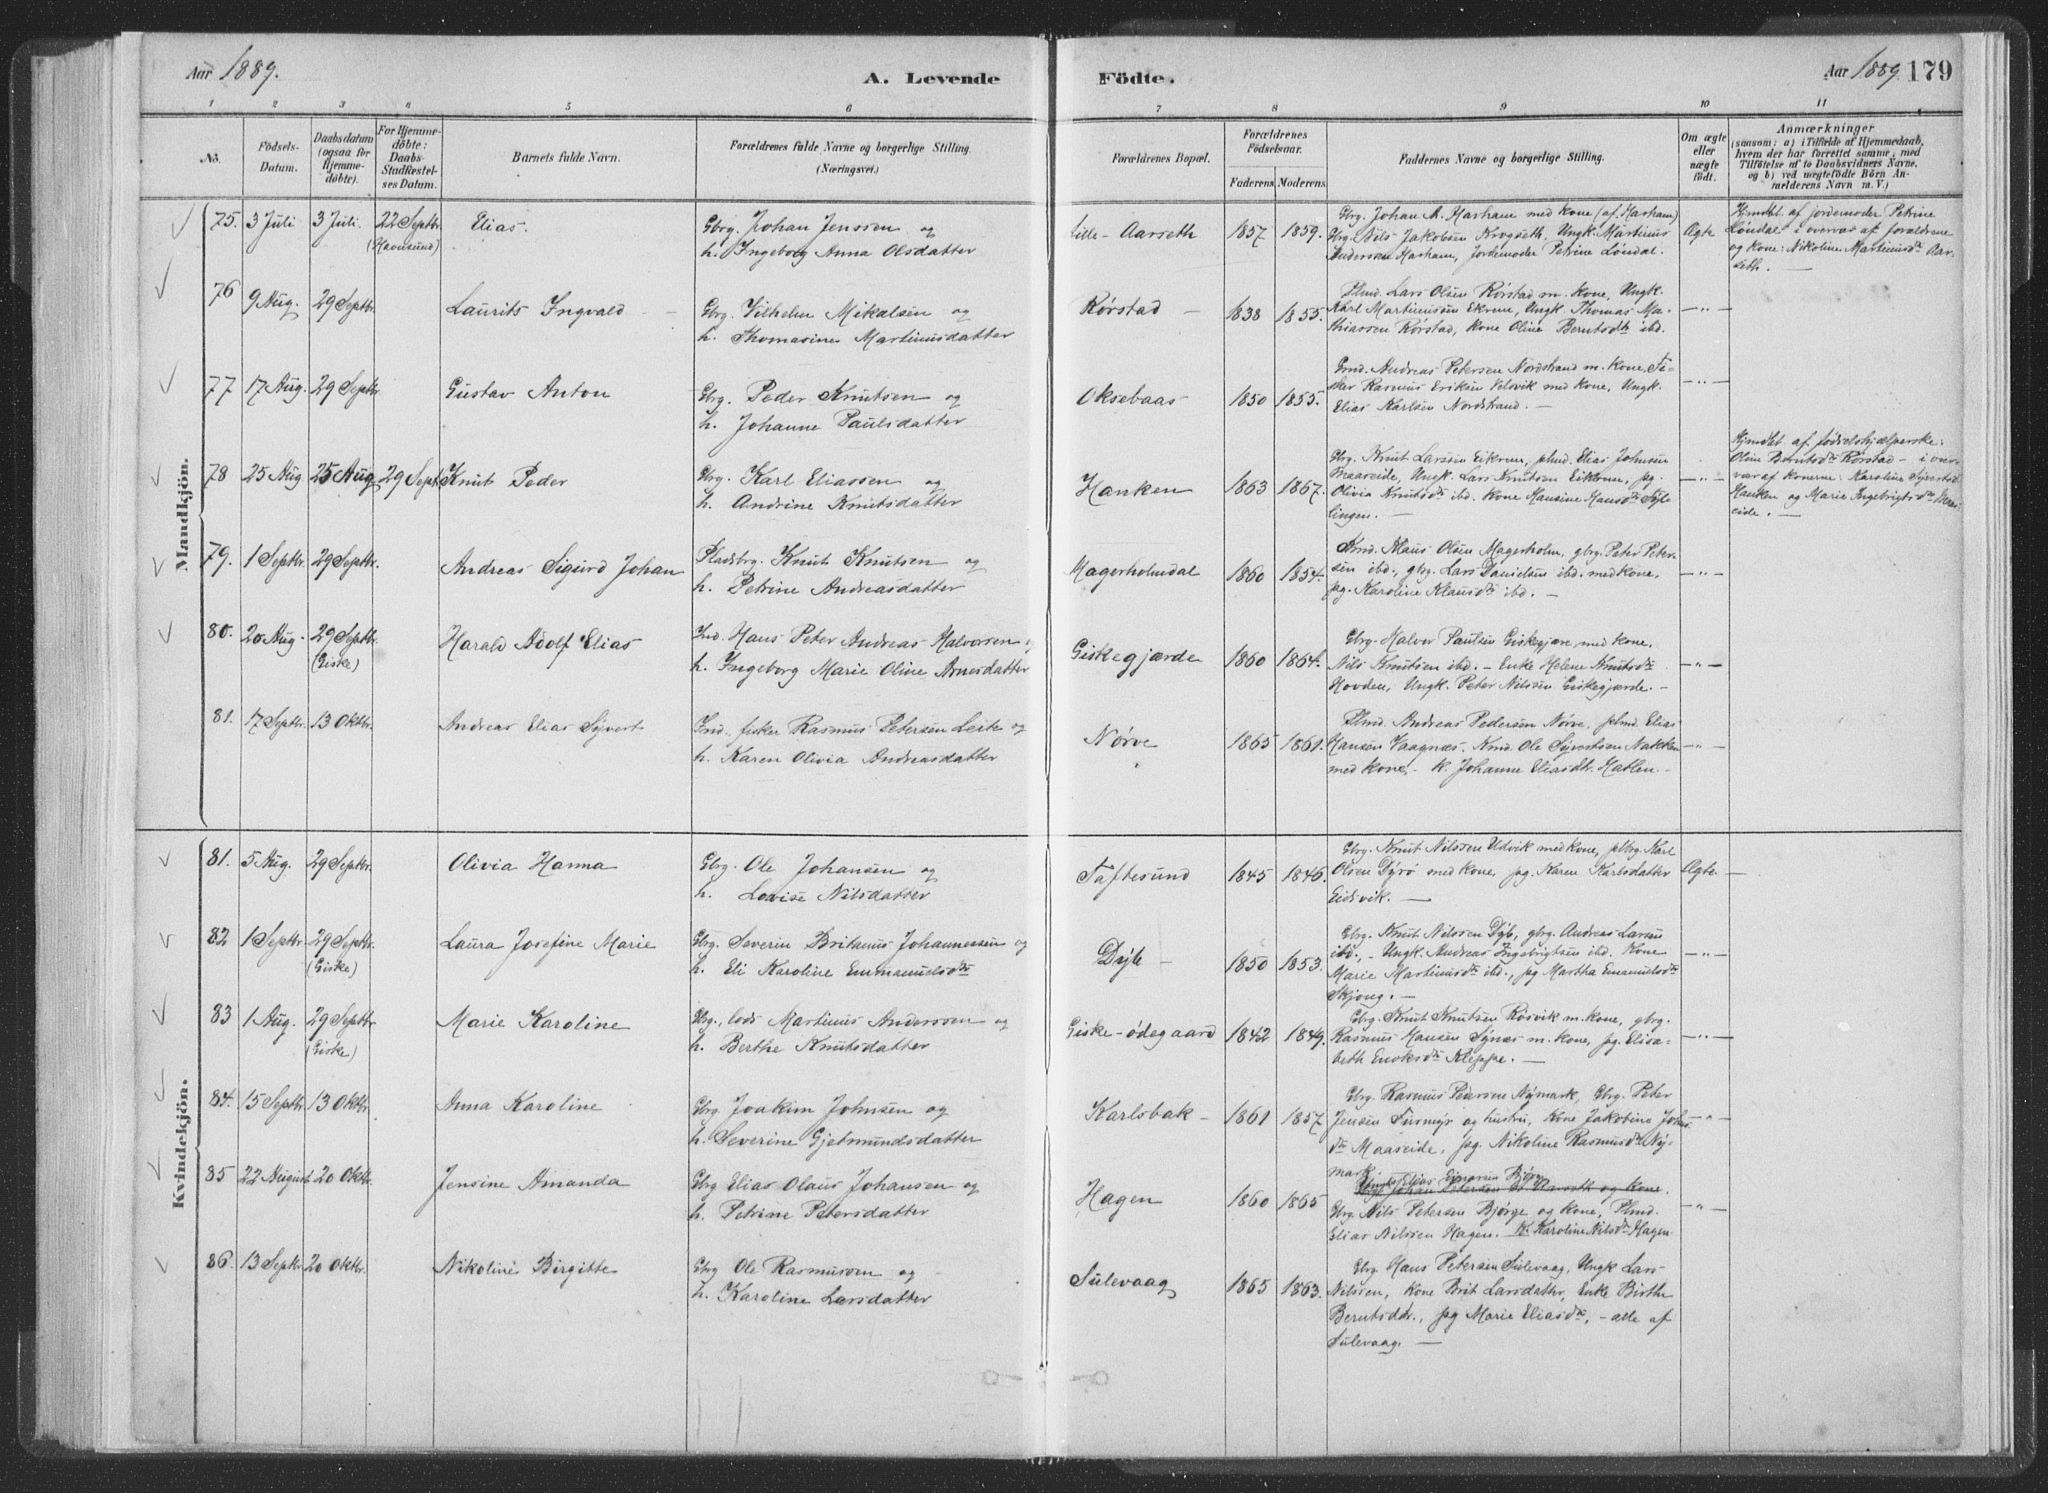 Aar 1889.
A. Levende
Födte.
Aar 1889 179
1 2 3 4 5 6 7 8 9 10 11
No.
Födsels-
Datum.
Daabsdatum
(ogsaa for
Hjemme-
döbte).
For Hjemme-
döbte:
Daabs-
Stadfæstel-
ses Datum.
Barnets fulde Navn.
Forældrenes fulde Navne og borgerlige Stilling.
(Næringsvei.)
Forældrenes Bopæl.
Forældrenes
Födselsaar.
Faderens Moderens
Faddernes Navne og borgerlige Stilling.
Om ægte
eller
uægte
födt.
Anmærkninger
(saasom: a) i Tilfælde af Hjemmedaab,
hvem der har forrettet samme, med
Tilföielse af to Daabsvidners Navne,
og b) ved uægtefödte Börn An-
melderens Navn m. V.)
Mandkjön.
75. 3 Juli 3 Juli 22 Septbr (Havnsund) Elias. Gbrg. Johan Jenssen og
h. Ingeborg Anna Olsdatter
Lille-Aarseth 1857 1859.
Gbrg. Johan A. Harham med Kone (af Harham)
Gbrg. Nils Jakobsen Krogseth, Ungk. Martinus
Andersen Harham, Jordemoder Petrine Löndal.
Ægte
Hjmdbt af jordemoder Petrine
Löndal i overvær af forældrene
og kone: Nikoline Martinusdr Aar-
seth. —
76 9 Aug. 29 Septbr. Laurits Ingvald Gbrg. Vilhelm Mikalsen og
h. Thomasine Martinusdatter
Rörstad — 1838 1855.
Plmd. Lars Olsen Rörstad m. Kone, Ungk.
Karl Martinusen Ekrem, Ungk Thomas Ma-
thiassen Rörstad, Kone Oline Berntsdtr ibd. —„—
77 17 Aug. 29 Septbr Gustav Anton Gbrg. Peder Knutsen og
h. Johanne Paulsdatter
Oksebaas 1850 1855.
Gmd. Andreas Petersen Nordstrand m. Kone, Fi-
sker Rasmus Eriksen Velsvik med Kone, Ungk.
Elias Karlsen Nordstrand. — —„—
78 25 Aug 25 Aug 29 Sept. Knut Peder Gbrg. Karl Eliassen og
h. Andrine Knutsdatter
Hanken 1863 1867.
Gbrg. Knut Larsen Eikrem, plmd. Elias Johnsen
Maaseide, Ungk. Lars Knutsen Eikrem, pg.
Olivia Knutsdtr ibd. Kone Hansine Hansdr Syl-
lingen. — —„—
Hjmdbt af födselshjælperske:
Oline Berntsdtr Rörstad — i over-
vær af konerne: Karoline Sÿvertsdr
Hanken og Marie Ingebrigtsdtr Maa-
seide. —
79. 1 Septbr. 29 Septbr. Andreas Sigurd Johan Pladsbrg. Knut Knutsen og
h. Petrine Andreasdatter
Magerholmdal 1860 1854.
Kmd. Klaus Olsen Magerholm, gbrg. Peter Peter-
sen ibd., gbrg. Lars Danielsen ibd. med Kone,
pg. Karoline Klausdtr ibd. — —„—
80. 20 Aug. 29 Septbr. (Giske) Harald Adolf Elias Ind. Hans Peter Andreas Halvorsen og
h. Ingeborg Marie Oline Arnesdatter
Giskegjærde 1860 1864.
Gbrg. Halvor Paulsen Giskegjære med Kone,
Nils Knutsen ibd. — Enke Helene Knutsdtr
Hovden, Ungk. Peter Nilssen Giskegjærde. — —„—
81. 17 Septbr. 13 Oktbr. Andreas Elias Sÿvert Ind. fisker Rasmus Petersen Leite og
h. Karen Olivia Andreasdatter
Nörve 1865 1861.
Plmd. Andreas Pedersen Nörve, plmd. Elias
Hansen Vaagnæs. Kmd. Ole Sÿvertsen Nakken
med kone, — K. Johanne Eliasdtr. Hatlen. — —„—
Kvindekjön.
81. 5 Aug. 29 Septbr. Olivia Hanna Gbrg. Ole Johansen og
h. Lovise Nilsdatter
Taftesund 1845 1846.
Gbrg. Knut Nilssen Udvik med kone, plbg. Karl
Olsen Dÿrö med kone, pg. Karen Karlsdatter
Eidsvik. — Ægte —
82 1 Septbr. 29 Septbr. (Giske) Laura Josefine Marie Gbrg. Severin Britanus Johannessen og
h. Eli Karoline Emmanuelsdtr
Dÿb — 1850 1853.
Gbrg. Knut Nilssen Dÿb, gbrg. Andreas Larsen
ibd., — Ungk. Andreas Ingebrigtsen ibd. Kone
Marie Martinusdtr ibd., pg Martha Emanuelsdtr
Skjong. — —„—
83 1 Aug. 29 Septbr (Giske) Marie Karoline Gbrg., lods Martinus Anderssen og
h. Berthe Knutsdatter
Giske-ödegaard 1842 1849.
Gbrg. Knut Knutsen Rösvik m. kone, gbrg.
Rasmus Hansen Sÿnæs m. kone, pg. Elisa-
beth Enoksdtr Kleppe. — —„—
84. 15 Septbr 13 Oktbr. Anna Karoline Gbrg Joakim Johnsen og
h. Severine Gjetmundsdatter
Karlsbak — 1861 1857.
Gbrg. Rasmus Pedersen Nÿmark, Gbrg. Peter
Jensen Surmÿr og hustru, Kone Jakobine Johns-
dtr Maaseide, pg. Nikoline Rasmusdtr Nÿ-
mark. —„—
85 22 August 20 Oktbr. Jensine Amanda Gbrg Elias Olaus Johansen og
h. Petrine Petersdatter
Hagen 1860 1865
Ungk. Elias Einarsen Bjørge
Gbrg. Nils Petersen Bjørge og kone, Plmd.
Elias Nilssen Hagen. K. Karoline Nilsdtr Hagen —„—
86. 13 Septbr. 20 Oktbr. Nikoline Birgitte Gbrg Ole Rasmussen og
h. Karoline Larsdatter
Sulevaag 1865 1863.
Gbrg Hans Petersen Sulevaag, Ungk Lars
Nilssen, kone Brit Larsdatter, Enke Birthe
Berntsdtr., pg Marie Eliasdtr, — alle af
Sulevaag. —